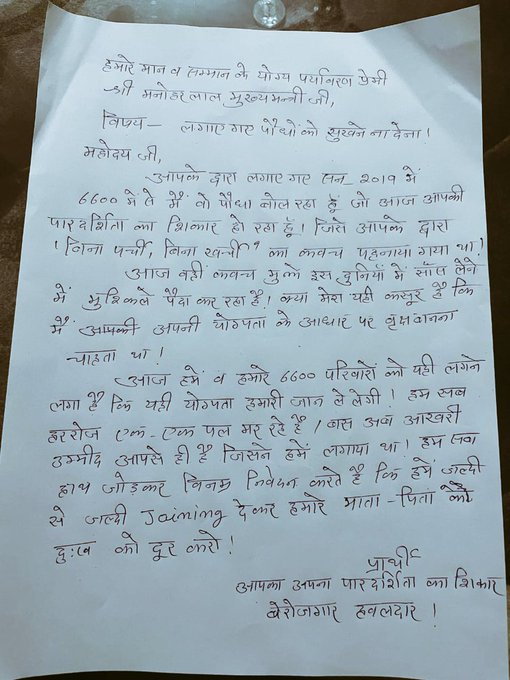 हमारे मान व सम्मान के योग्य पर्यावरण प्रेमी
श्री मनोहर लाल मुख्यमन्त्री जी,
विषय - लगाए गए पौधों को सुखने ना देना।
महोदय जी,
आपके द्वारा लगाए गए सन् 2019 में
6600 में से मैं वो पौधा बोल रहा हूं जो आज आपकी
पारदर्शिता का शिकार हो रहा हूँ! जिसे आपके द्वारा
'बिना पर्ची, बिना खर्ची' का कवच पहनाया गया था!
आज वहीं कवच मुझे इस दुनिया में साँस लेने
में मुश्किले पैदा कर रहा है! क्या मेरा यही कसूर है कि
मैं आपकी अपनी योग्यता के आधार पर वृक्ष बनना
चाहता था!
आज हमें व हमारे 6600 परिवारों को यही लगने
लगा है कि यही योग्यता हमारी जान ले लेगी! हम सब
हररोज एक-एक पल मर रहे है। बस अब आखरी
उम्मीद आपसे ही है जिसने हमें लगाया था! हम सब
हाथ जोड़कर विनम्र निवेदन करते है कि हमे जल्दी
से जल्दी Joining देकर हमारे माता-पिता के
दुःख को दूर करो!
प्रार्थी
आपका अपना पारदर्शिता का शिकार
बेरोजगार हवलदार!